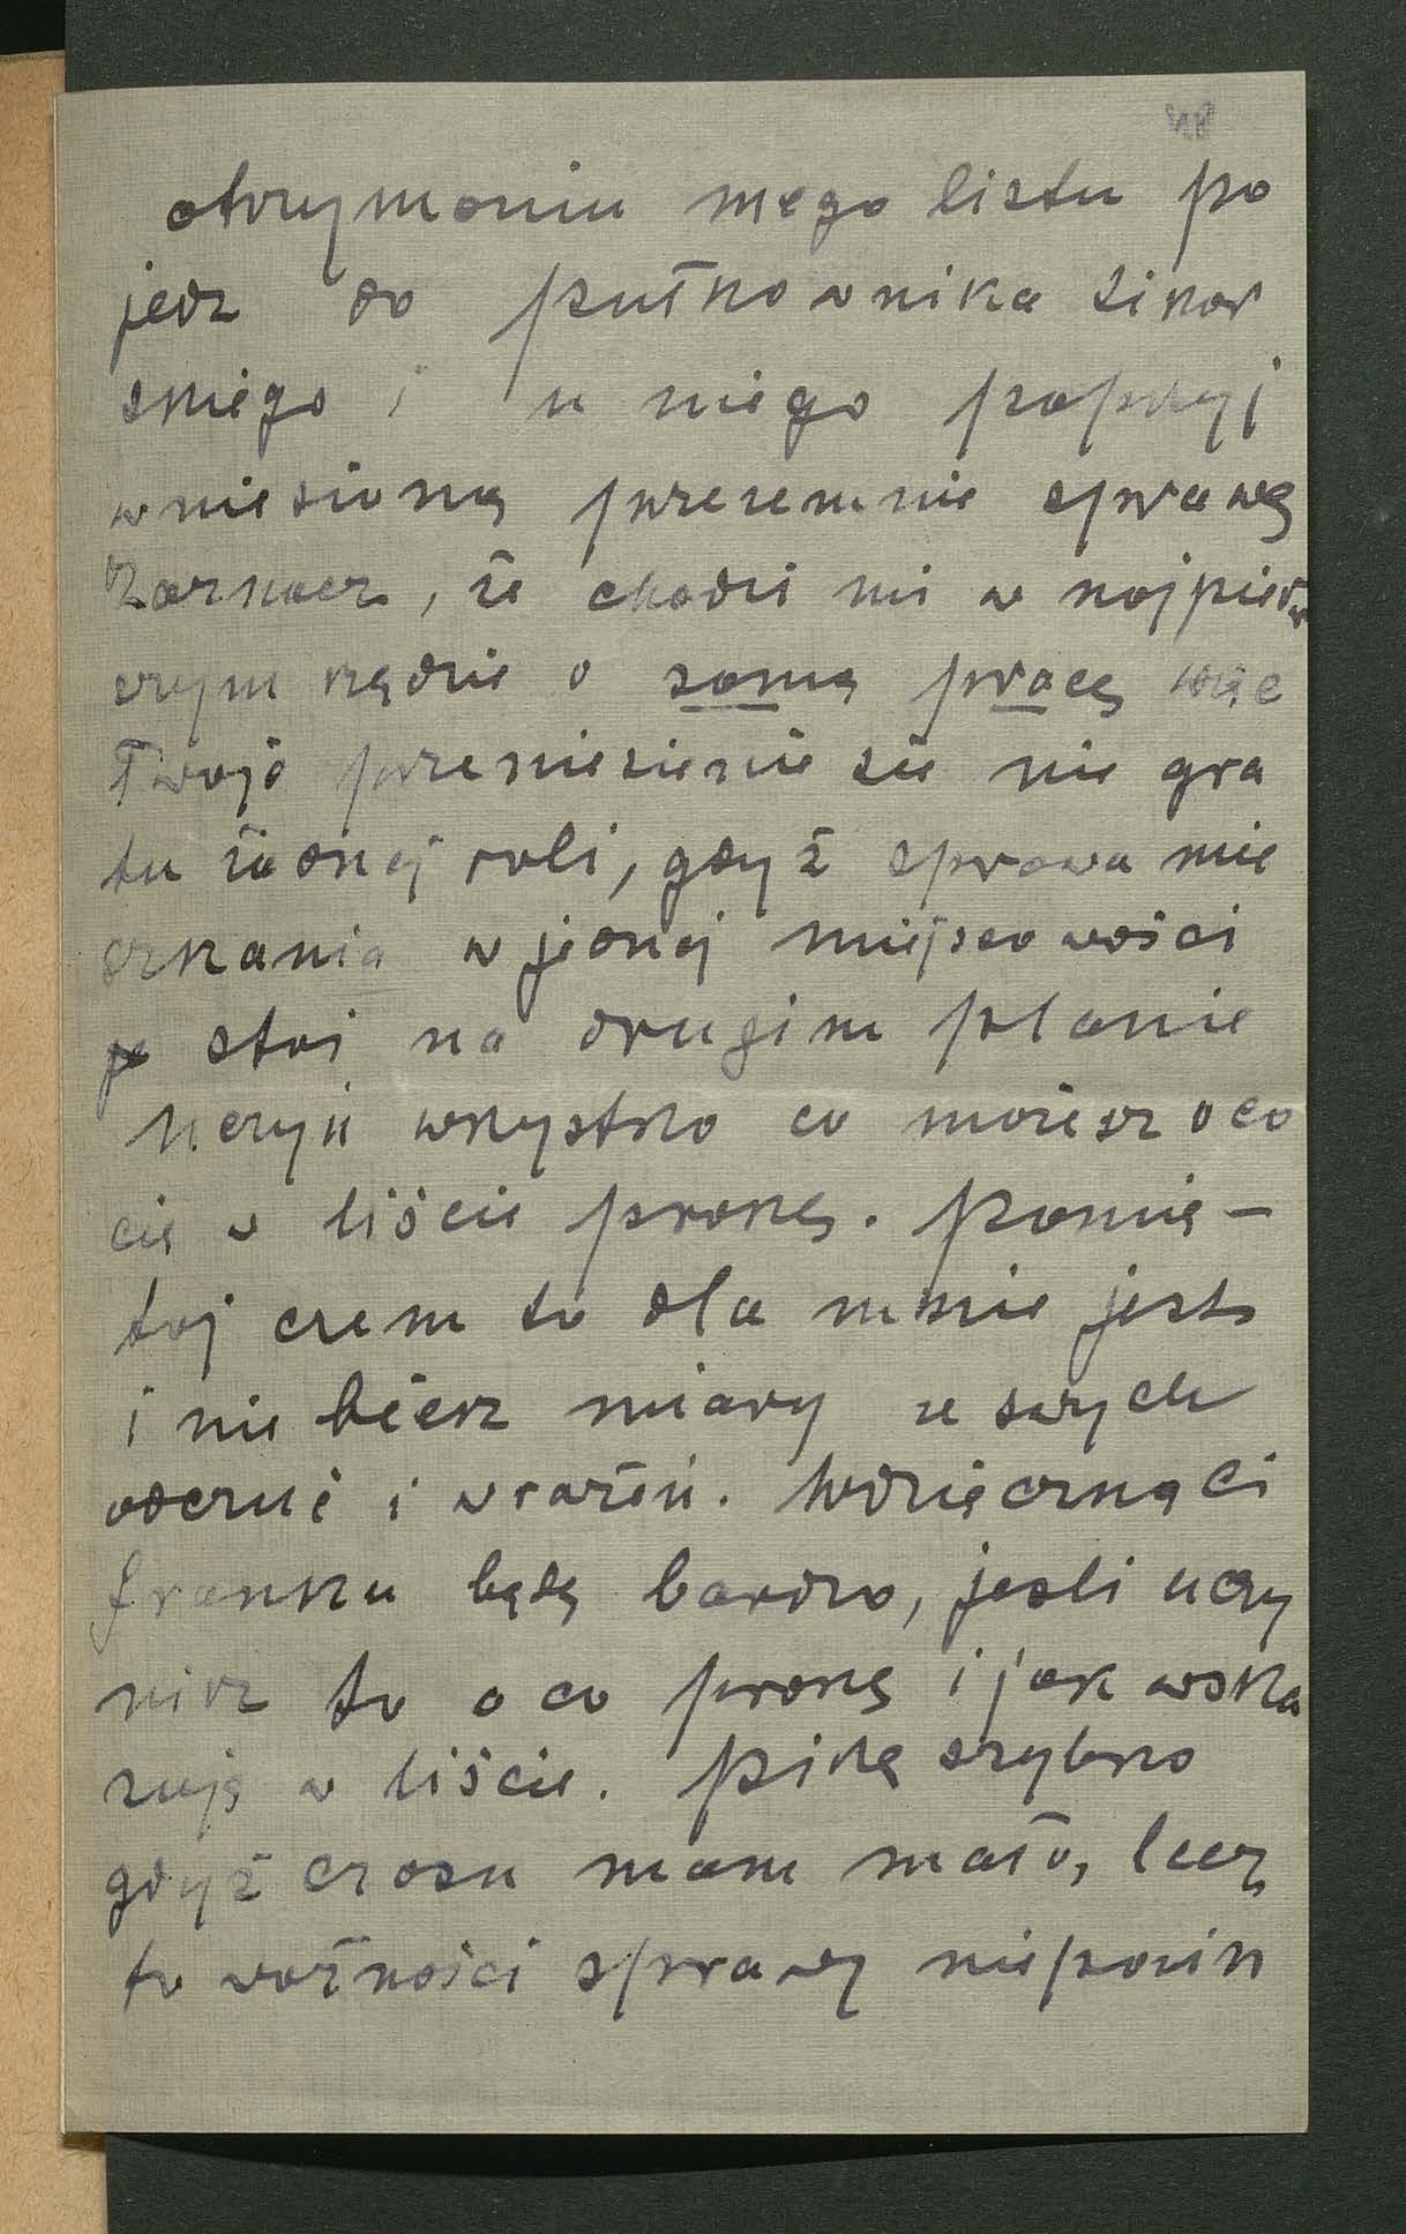 48
otrzymaniu mego listu po
jedz do pułkownika Sikor
skiego i u niego poprzyj
wniesioną przezemnie sprawę
Zaznacz, że chodzi mi w najpierw
szym rzędzie o samą pracę więc
Twoje przeniesienie się nie gra
tu żadnej roli, gdyż sprawa mie
szkania w jednej miejscowości
stoi na drugim planie
Uczyń wszystko co możesz o co
cię w liście proszę. Pamię-
taj czem to dla mnie jest
i nie bierz miary ze swych
odczuć i wrażeń. Wdzięczną Ci
Franku będę bardzo, jeśli uczy
nisz to o co proszę i jak wska
zuję w liście. Piszę szybko
gdyż czasu mam mało, lecz
to ważności sprawy niepowin